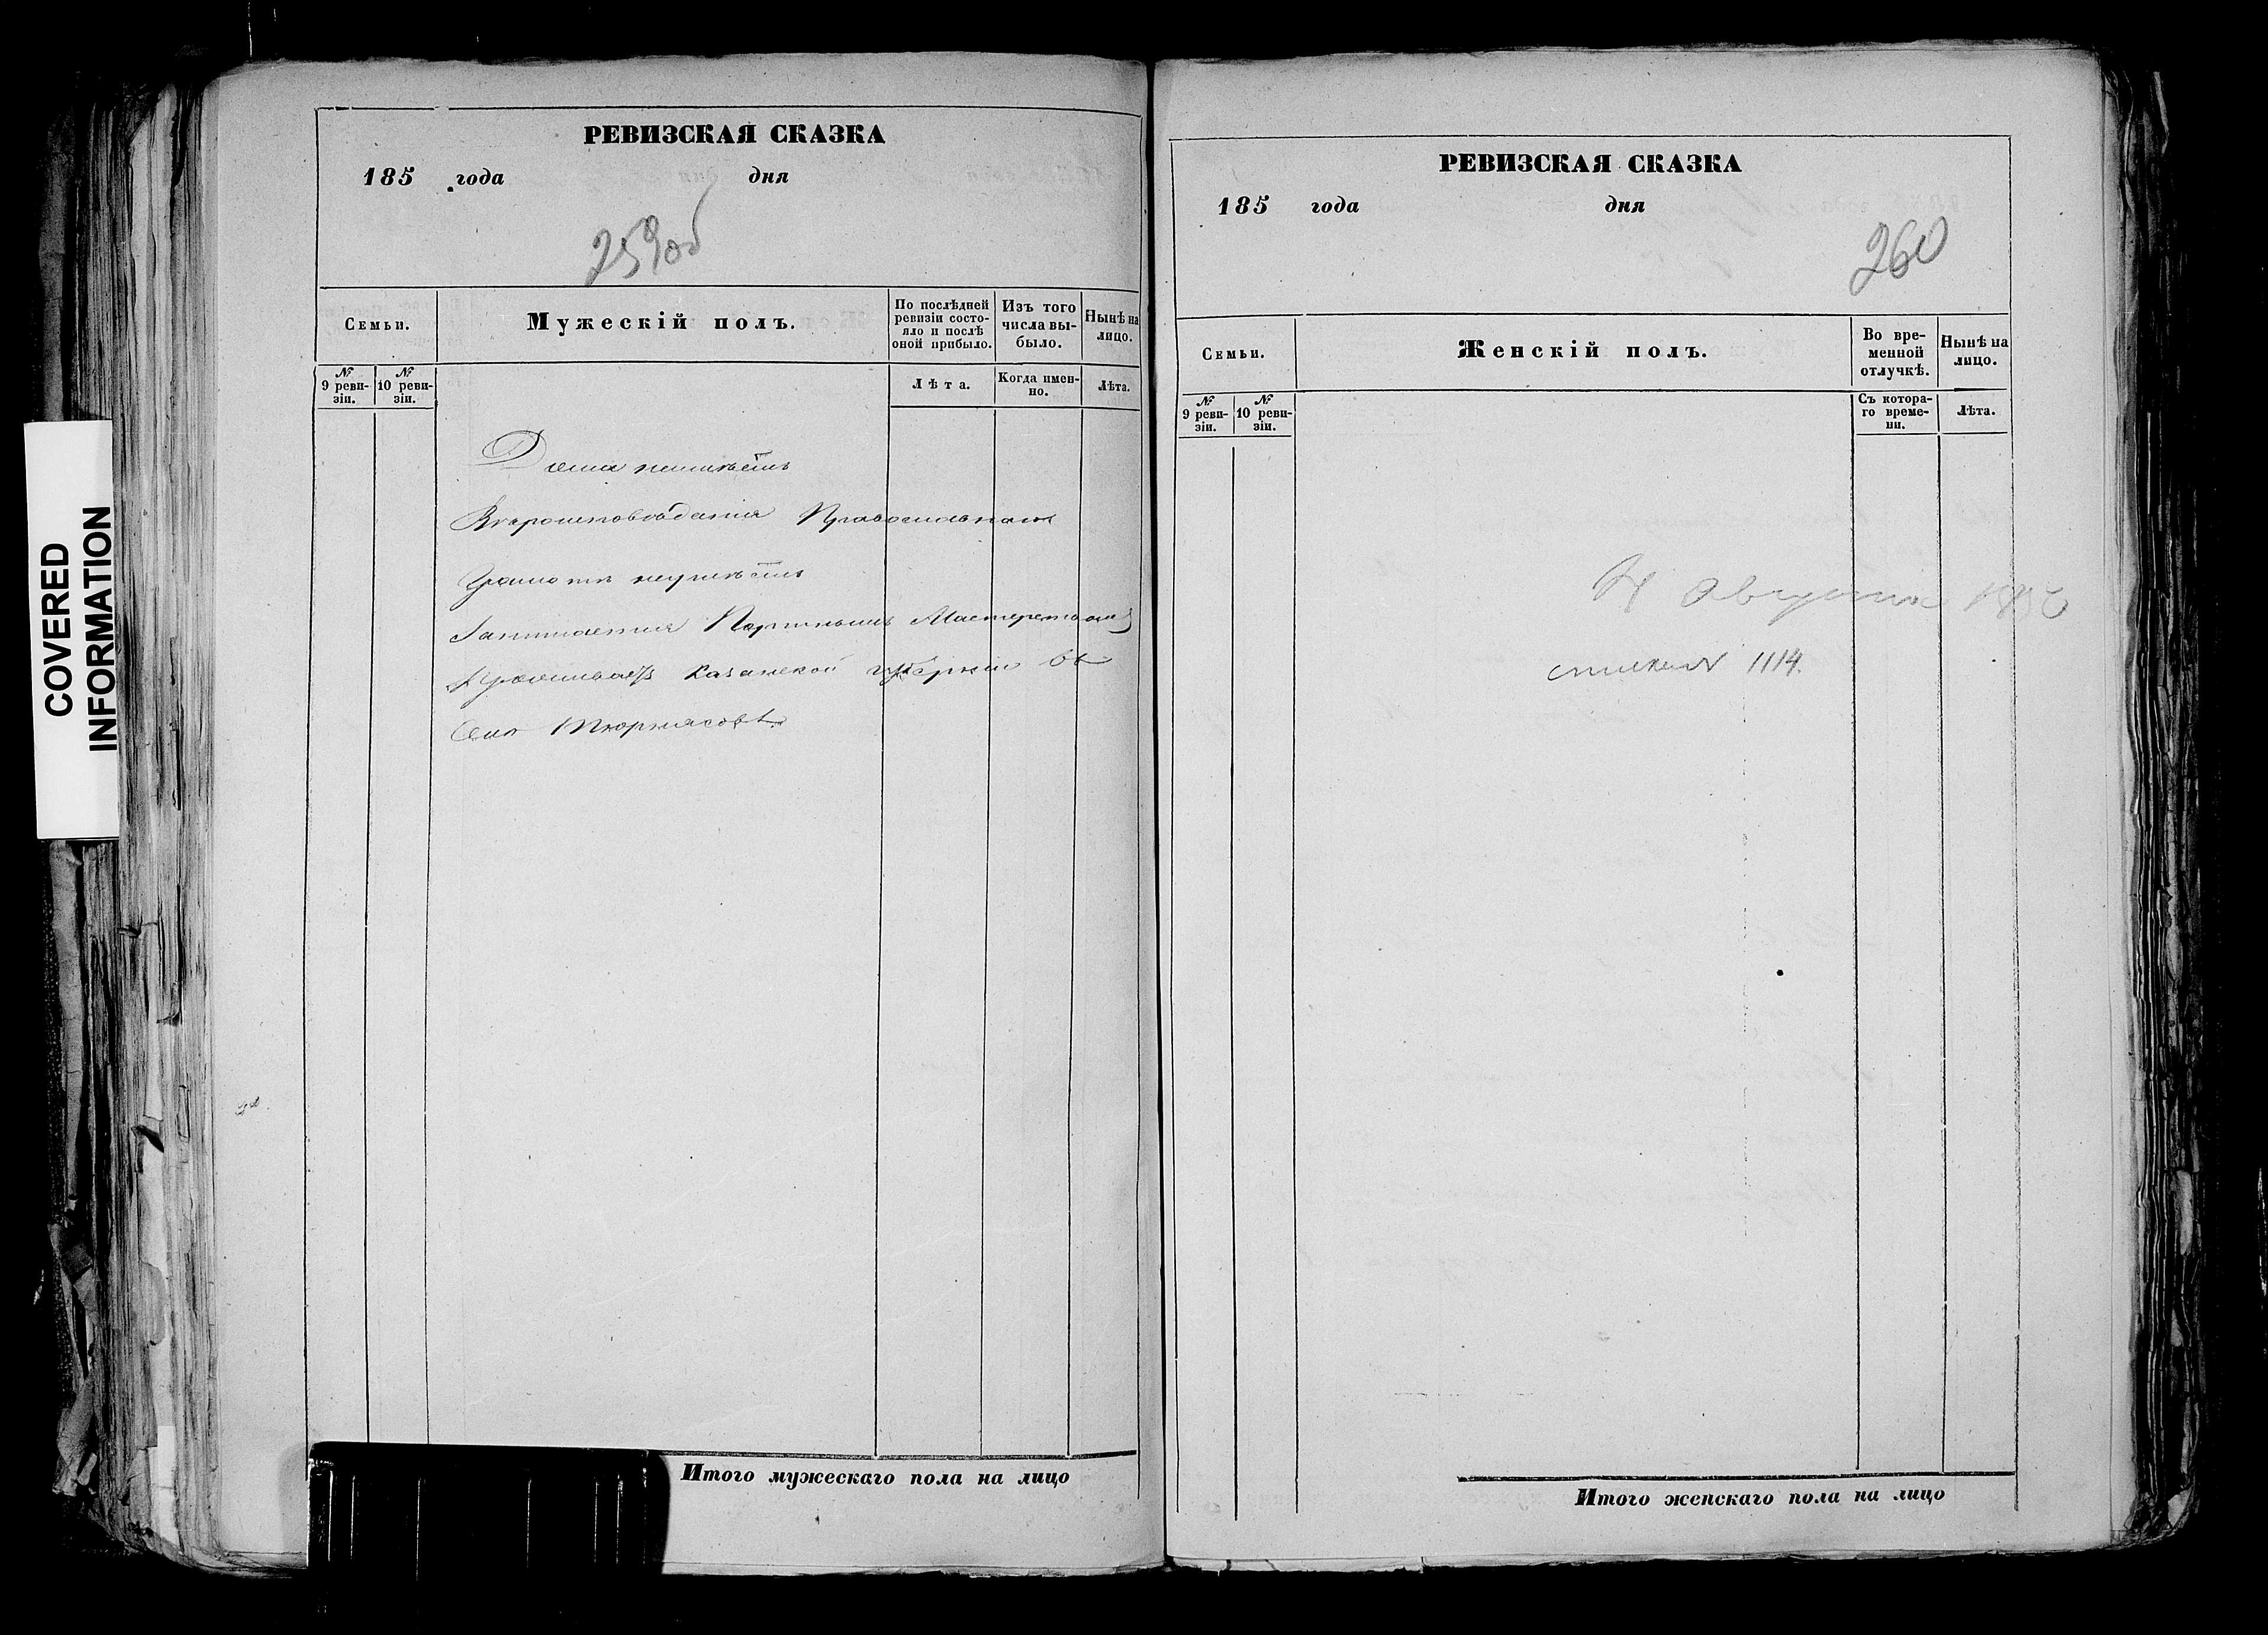 COVERED
INFORMATION
РЕВИЗСКАЯ СКАЗКА
185 года дня
259об
Семьи.
Мужескій полъ.
По послѣдней ревизіи состояло и послѣ оной прибыло.
Изъ того числа выбыло.
Нынѣ на лицо.
№ 9 ревизіи.
№ 10 ревизіи.
Лѣта.
Когда именно.
Лѣта.
Дома неимѣетъ
Вѣроисповѣданія Православнаго
Грамотѣ неумѣетъ
Занимается Портнымъ Мастерствомъ
Проживаетъ Казанской губерніи въ
Селѣ Тюрнясовѣ.
Итого мужескаго пола на лицо
РЕВИЗСКАЯ СКАЗКА
185 года дня
260
Семьи.
Женскій полъ.
Во временной отлучкѣ.
Нынѣ на лицо.
№ 9 ревизіи.
№ 10 ревизіи.
Съ котораго времени.
Лѣта.
Августа
1114.
Итого женскаго пола на лицо